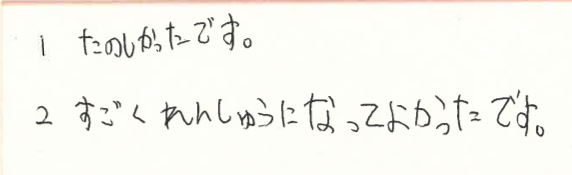 1 たのしかったです。
2 すごくれんしゅうになってよかったです。